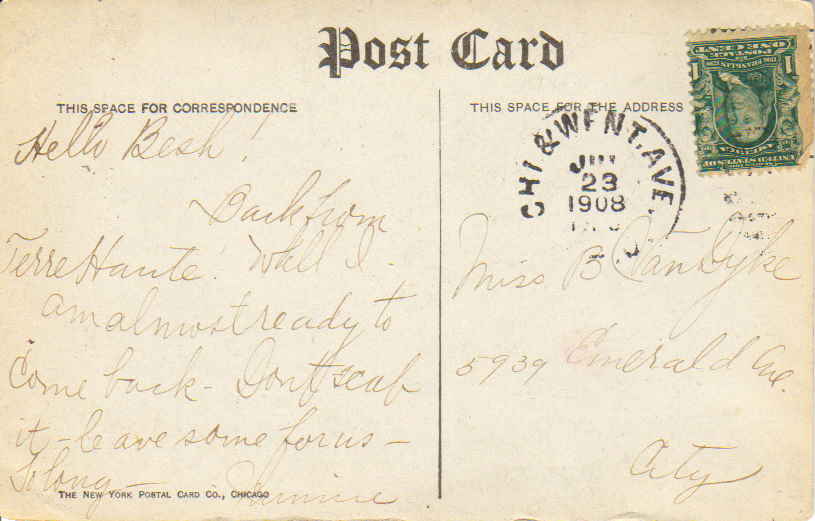 Post Card
THIS SPACE FOR CORRESPONDENCE
Hello Besh!
Back from
Terre Haute. Well I
am almost ready to
come back - Dont scab
it - leave some for us -
So long -
THE NEW YORK POSTAL CARD CO., CHICAGO
THIS SPACE FOR THE ADDRESS
CHI & WENT. AVE.
23
1908
Miss B Van Dyke
5939 Emerald Ave.
City
POSTAGE
ONE CENT
1 1